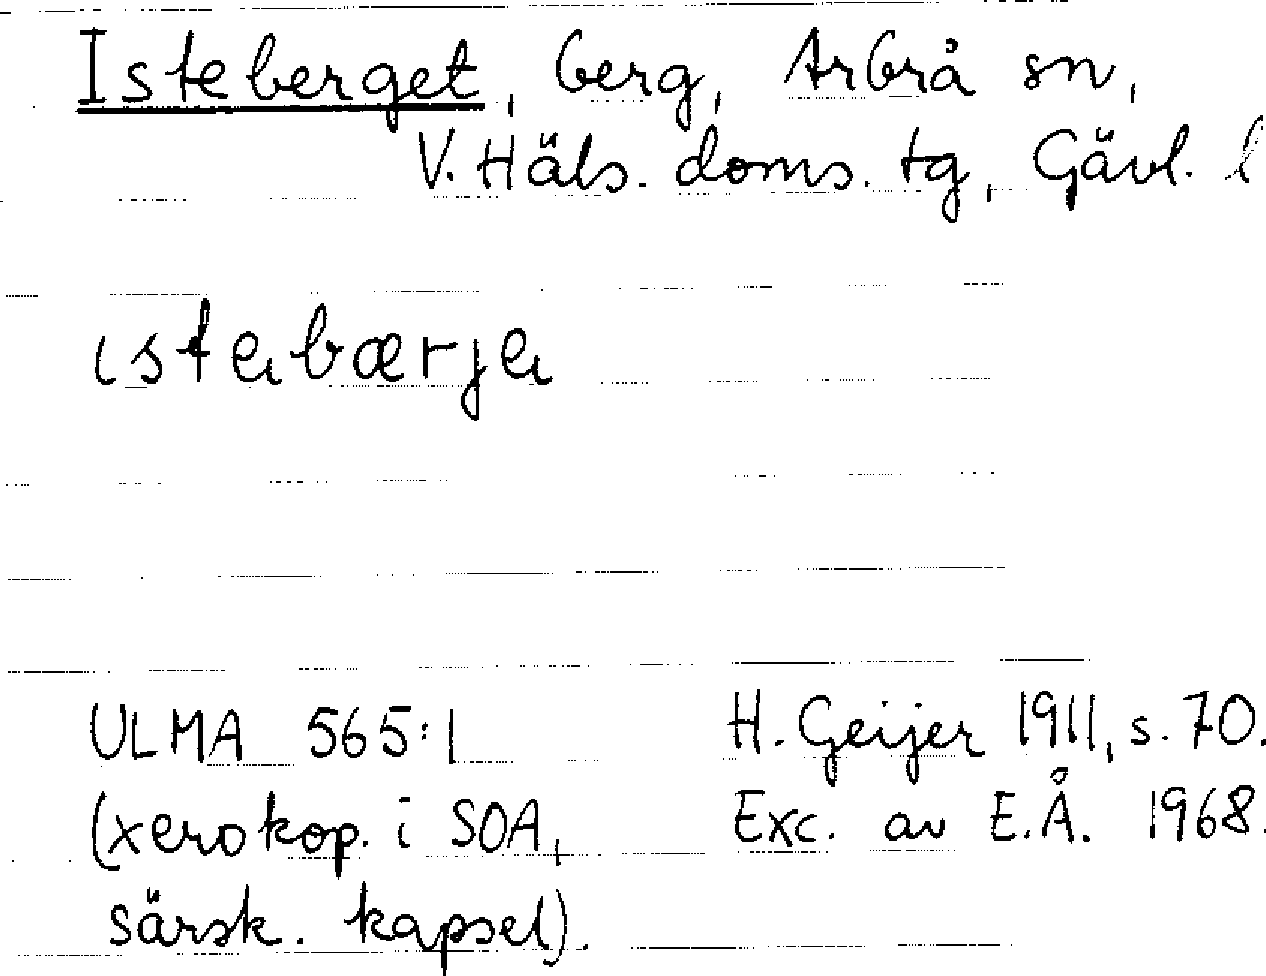 Isteberget, berg, Arbrå sn,
V. Häls. doms. tg, Gävl. l
istebærje
ULMA 565:1
(xerokop. i SOA,
särsk. kapsel).
H. Geijer 1911, s. 70.
Exc. av E.Å. 1968.